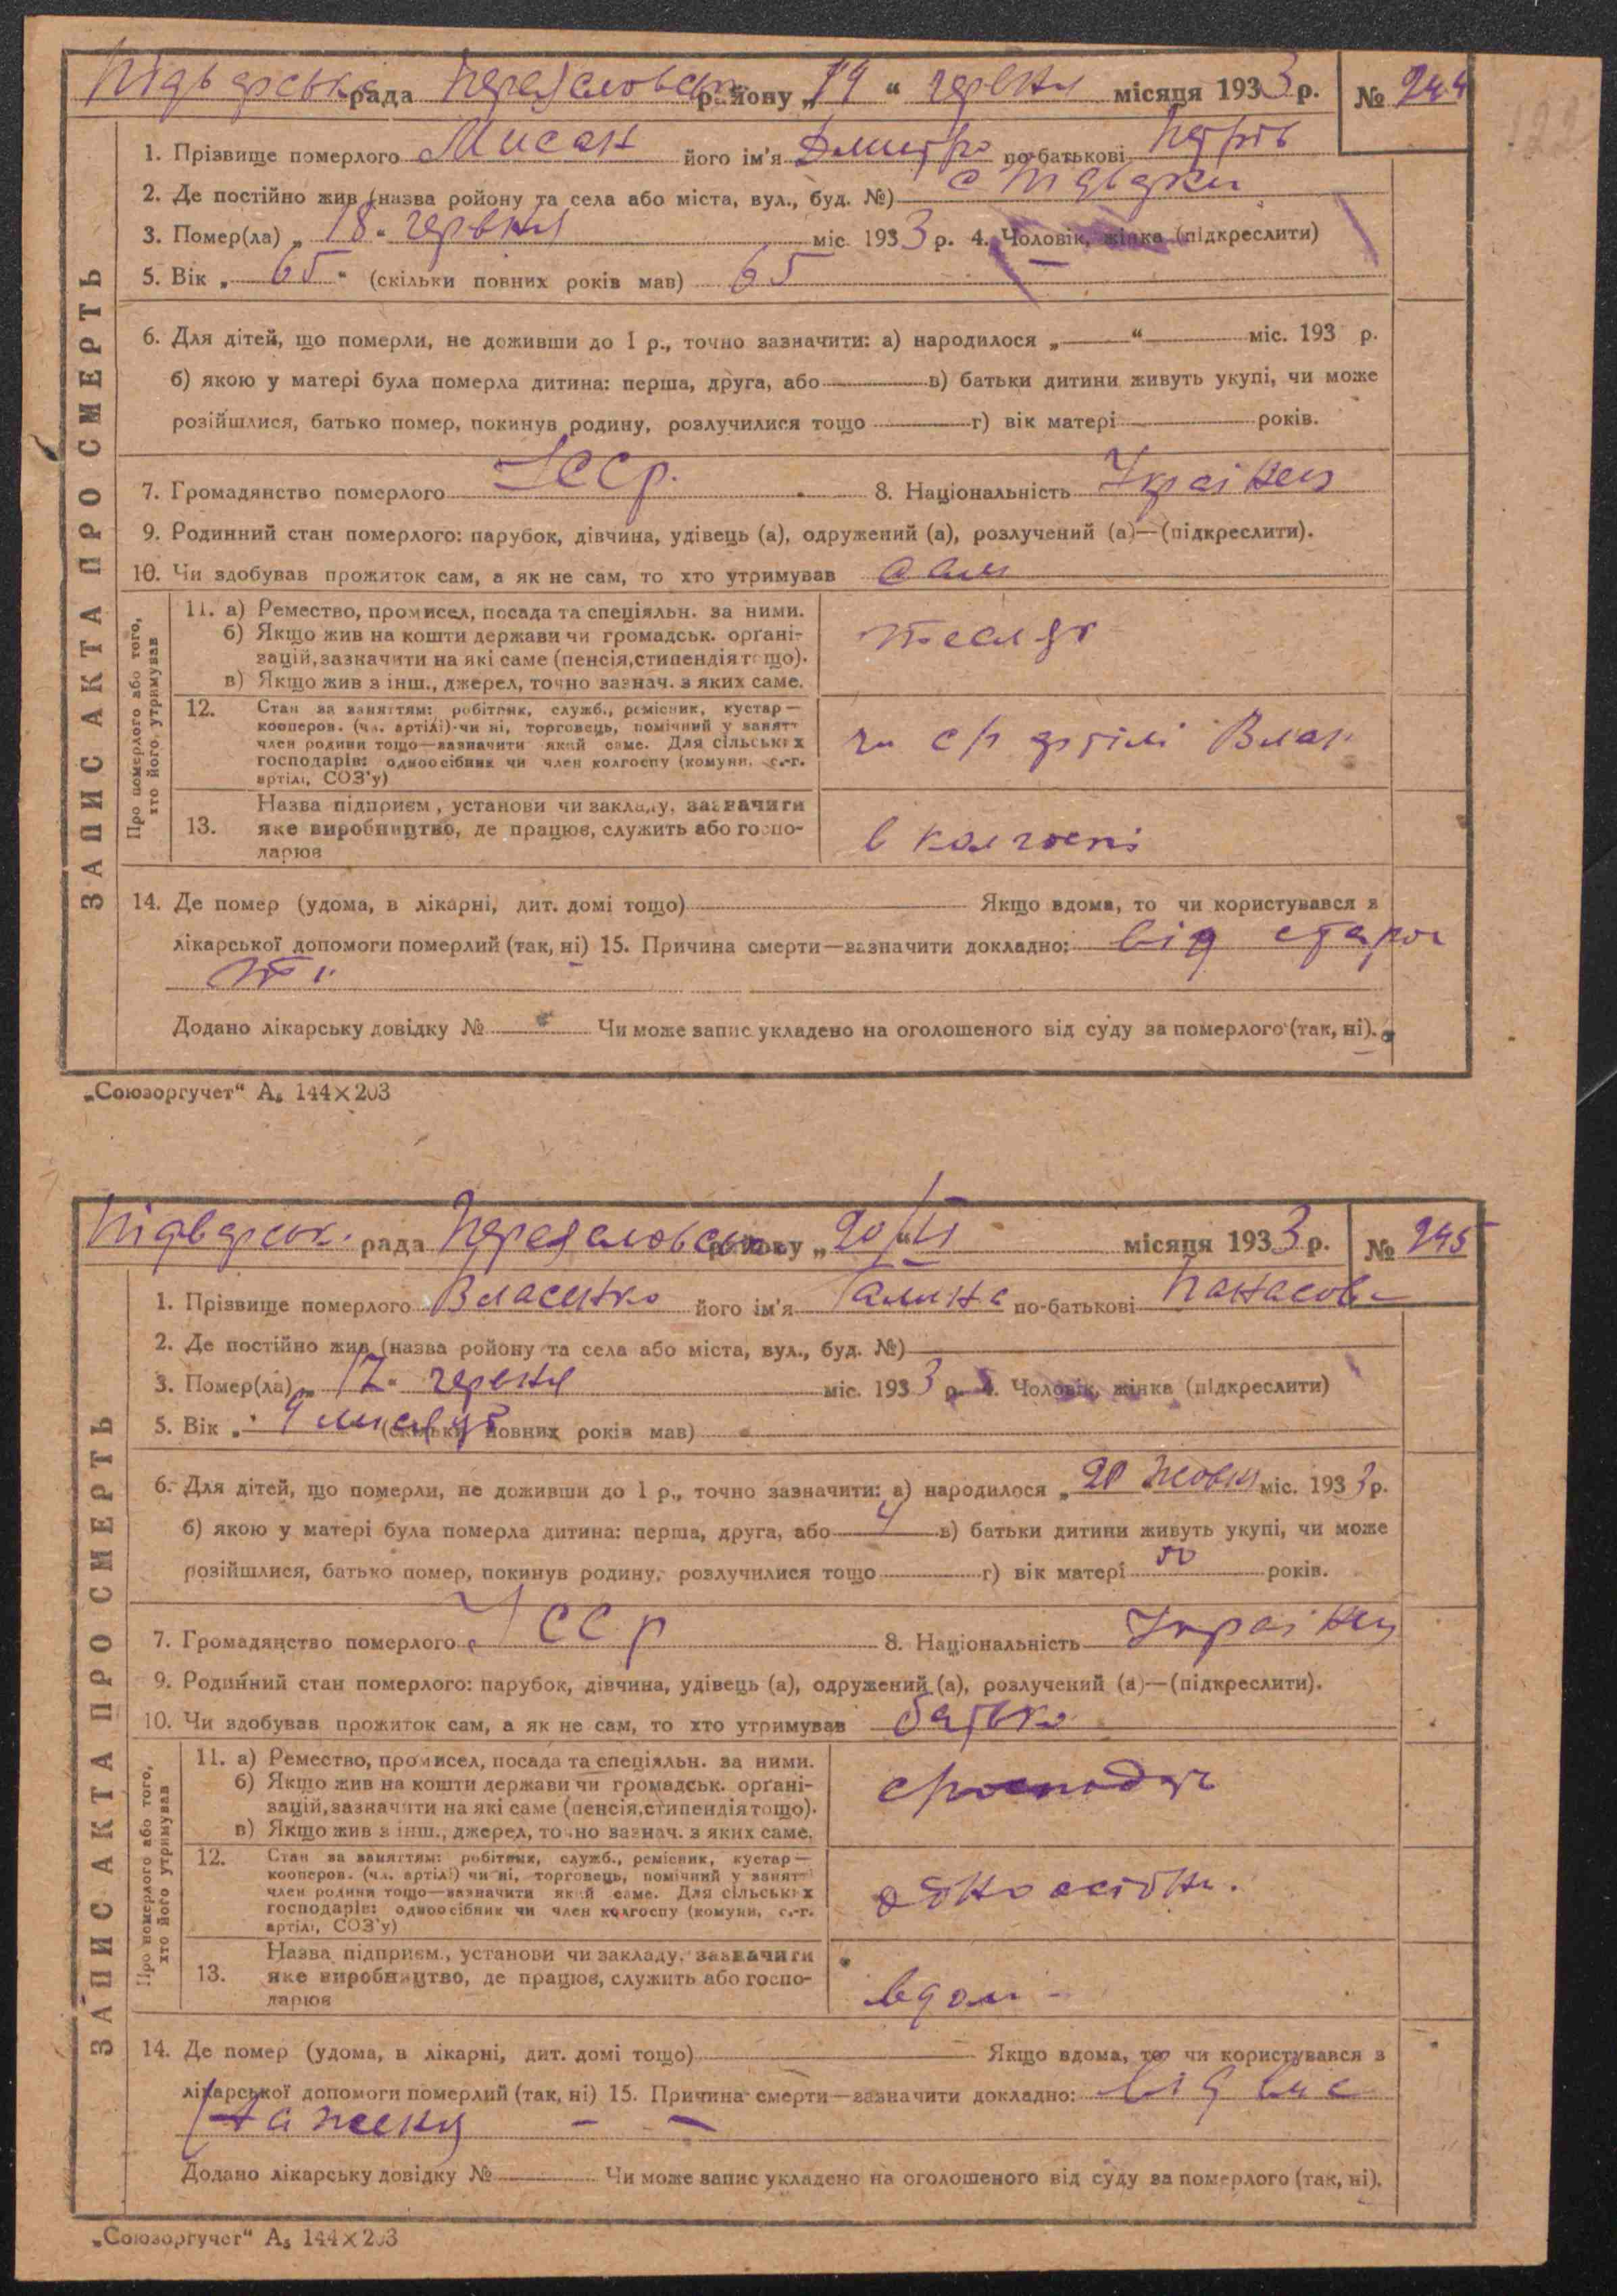 Підварська рада Переяславськ району „ 19 “ червня місяця 1933 р. № 244
ЗАПИС АКТА ПРО СМЕРТЬ
1. Прізвище померлого Мисан його ім'я Дмитро по-батькові Петров
2. Де постійно жив (назва ройону та села або міста, вул., буд. №) с Підварки
3. Помер(ла) „ 18 “ червня міс. 1933 р. 4. Чоловік, жінка (підкреслити)
5. Вік „ 65 “ (скільки повних років мав) 65
6. Для дітей, що померли, не доживши до 1 р., точно зазначити: а) народилося „ “ міс. 193 р.
б) якою у матері була померла дитина: перша, друга, або в) батьки дитини живуть укупі, чи може
розійшлися, батько помер, покинув родину, розлучилися тощо г) вік матері років.
7. Громадянство померлого УССР. 8. Національність Українец
9. Родинний стан померлого: парубок, дівчина, удівець (а), одружений (а), розлучений (а)—(підкреслити).
10. Чи здобував прожиток сам, а як не сам, то хто утримував сам
Про померлого або того, хто його утримував
11. а) Ремество, промисел, посада та спеціяльн. за ними.
б) Якщо жив на кошти держави чи громадськ. орґані-
зацій, зазначити на які саме (пенсія, стипендія тощо).
в) Якщо жив з інш., джерел, точно зазнач. з яких саме.
тесляр
12. Стан за заняттям: робітник, служб., ремісник, кустар—
кооперов. (чл. артілі) чи ні, торговець, помічний у занятт
член родини тощо—зазначити який саме. Для сільських
господарів: одноосібник чи член колгоспу (комуни, с.-г.
артілі, СОЗ'у)
чл с/г артілі
13. Назва підприєм., установи чи закладу, зазначити
яке виробництво, де працює, служить або госпо-
дарює
в колгоспі
14. Де помер (удома, в лікарні, дит. домі тощо) Якщо вдома, то чи користувався з
лікарської допомоги померлий (так, ні) 15. Причина смерти—зазначити докладно: від старос
ті
Додано лікарську довідку № Чи може запис укладено на оголошеного від суду за померлого (так, ні).
„Союзоргучет“ А₅ 144×203
Підварськ. рада Переяславськ. району „ 20/VI “ місяця 1933 р. № 245
ЗАПИС АКТА ПРО СМЕРТЬ
1. Прізвище померлого Власенко його ім'я Галина по-батькові Панасов
2. Де постійно жив (назва ройону та села або міста, вул., буд. №)
3. Помер(ла) „ 17 “ червня міс. 1933 р. 4. Чоловік, жінка (підкреслити)
5. Вік „ 9 місяців (скільки повних років мав)
6. Для дітей, що померли, не доживши до 1 р., точно зазначити: а) народилося „ 20 жовня міс. 1933 р.
б) якою у матері була померла дитина: перша, друга, або 4 в) батьки дитини живуть укупі, чи може
розійшлися, батько помер, покинув родину, розлучилися тощо г) вік матері років.
7. Громадянство померлого УССР 8. Національність Українец
9. Родинний стан померлого: парубок, дівчина, удівець (а), одружений (а), розлучений (а)—(підкреслити).
10. Чи здобував прожиток сам, а як не сам, то хто утримував батько
Про померлого або того, хто його утримував
11. а) Ремество, промисел, посада та спеціяльн. за ними.
б) Якщо жив на кошти держави чи громадськ. орґані-
зацій, зазначити на які саме (пенсія, стипендія тощо).
в) Якщо жив з інш., джерел, точно зазнач. з яких саме.
12. Стан за заняттям: робітник, служб., ремісник, кустар—
кооперов. (чл. артілі) чи ні, торговець, помічний у занятт
член родини тощо—зазначити який саме. Для сільських
господарів: одноосібник чи член колгоспу (комуни, с.-г.
артілі, СОЗ'у)
одноосібн.
13. Назва підприєм., установи чи закладу, зазначити
яке виробництво, де працює, служить або госпо-
дарює
вдом
14. Де помер (удома, в лікарні, дит. домі тощо) Якщо вдома, то чи користувався з
лікарської допомоги померлий (так, ні) 15. Причина смерти—зазначити докладно: від вис
наженя
Додано лікарську довідку № Чи може запис укладено на оголошеного від суду за померлого (так, ні).
„Союзоргучет“ А₅ 144×203